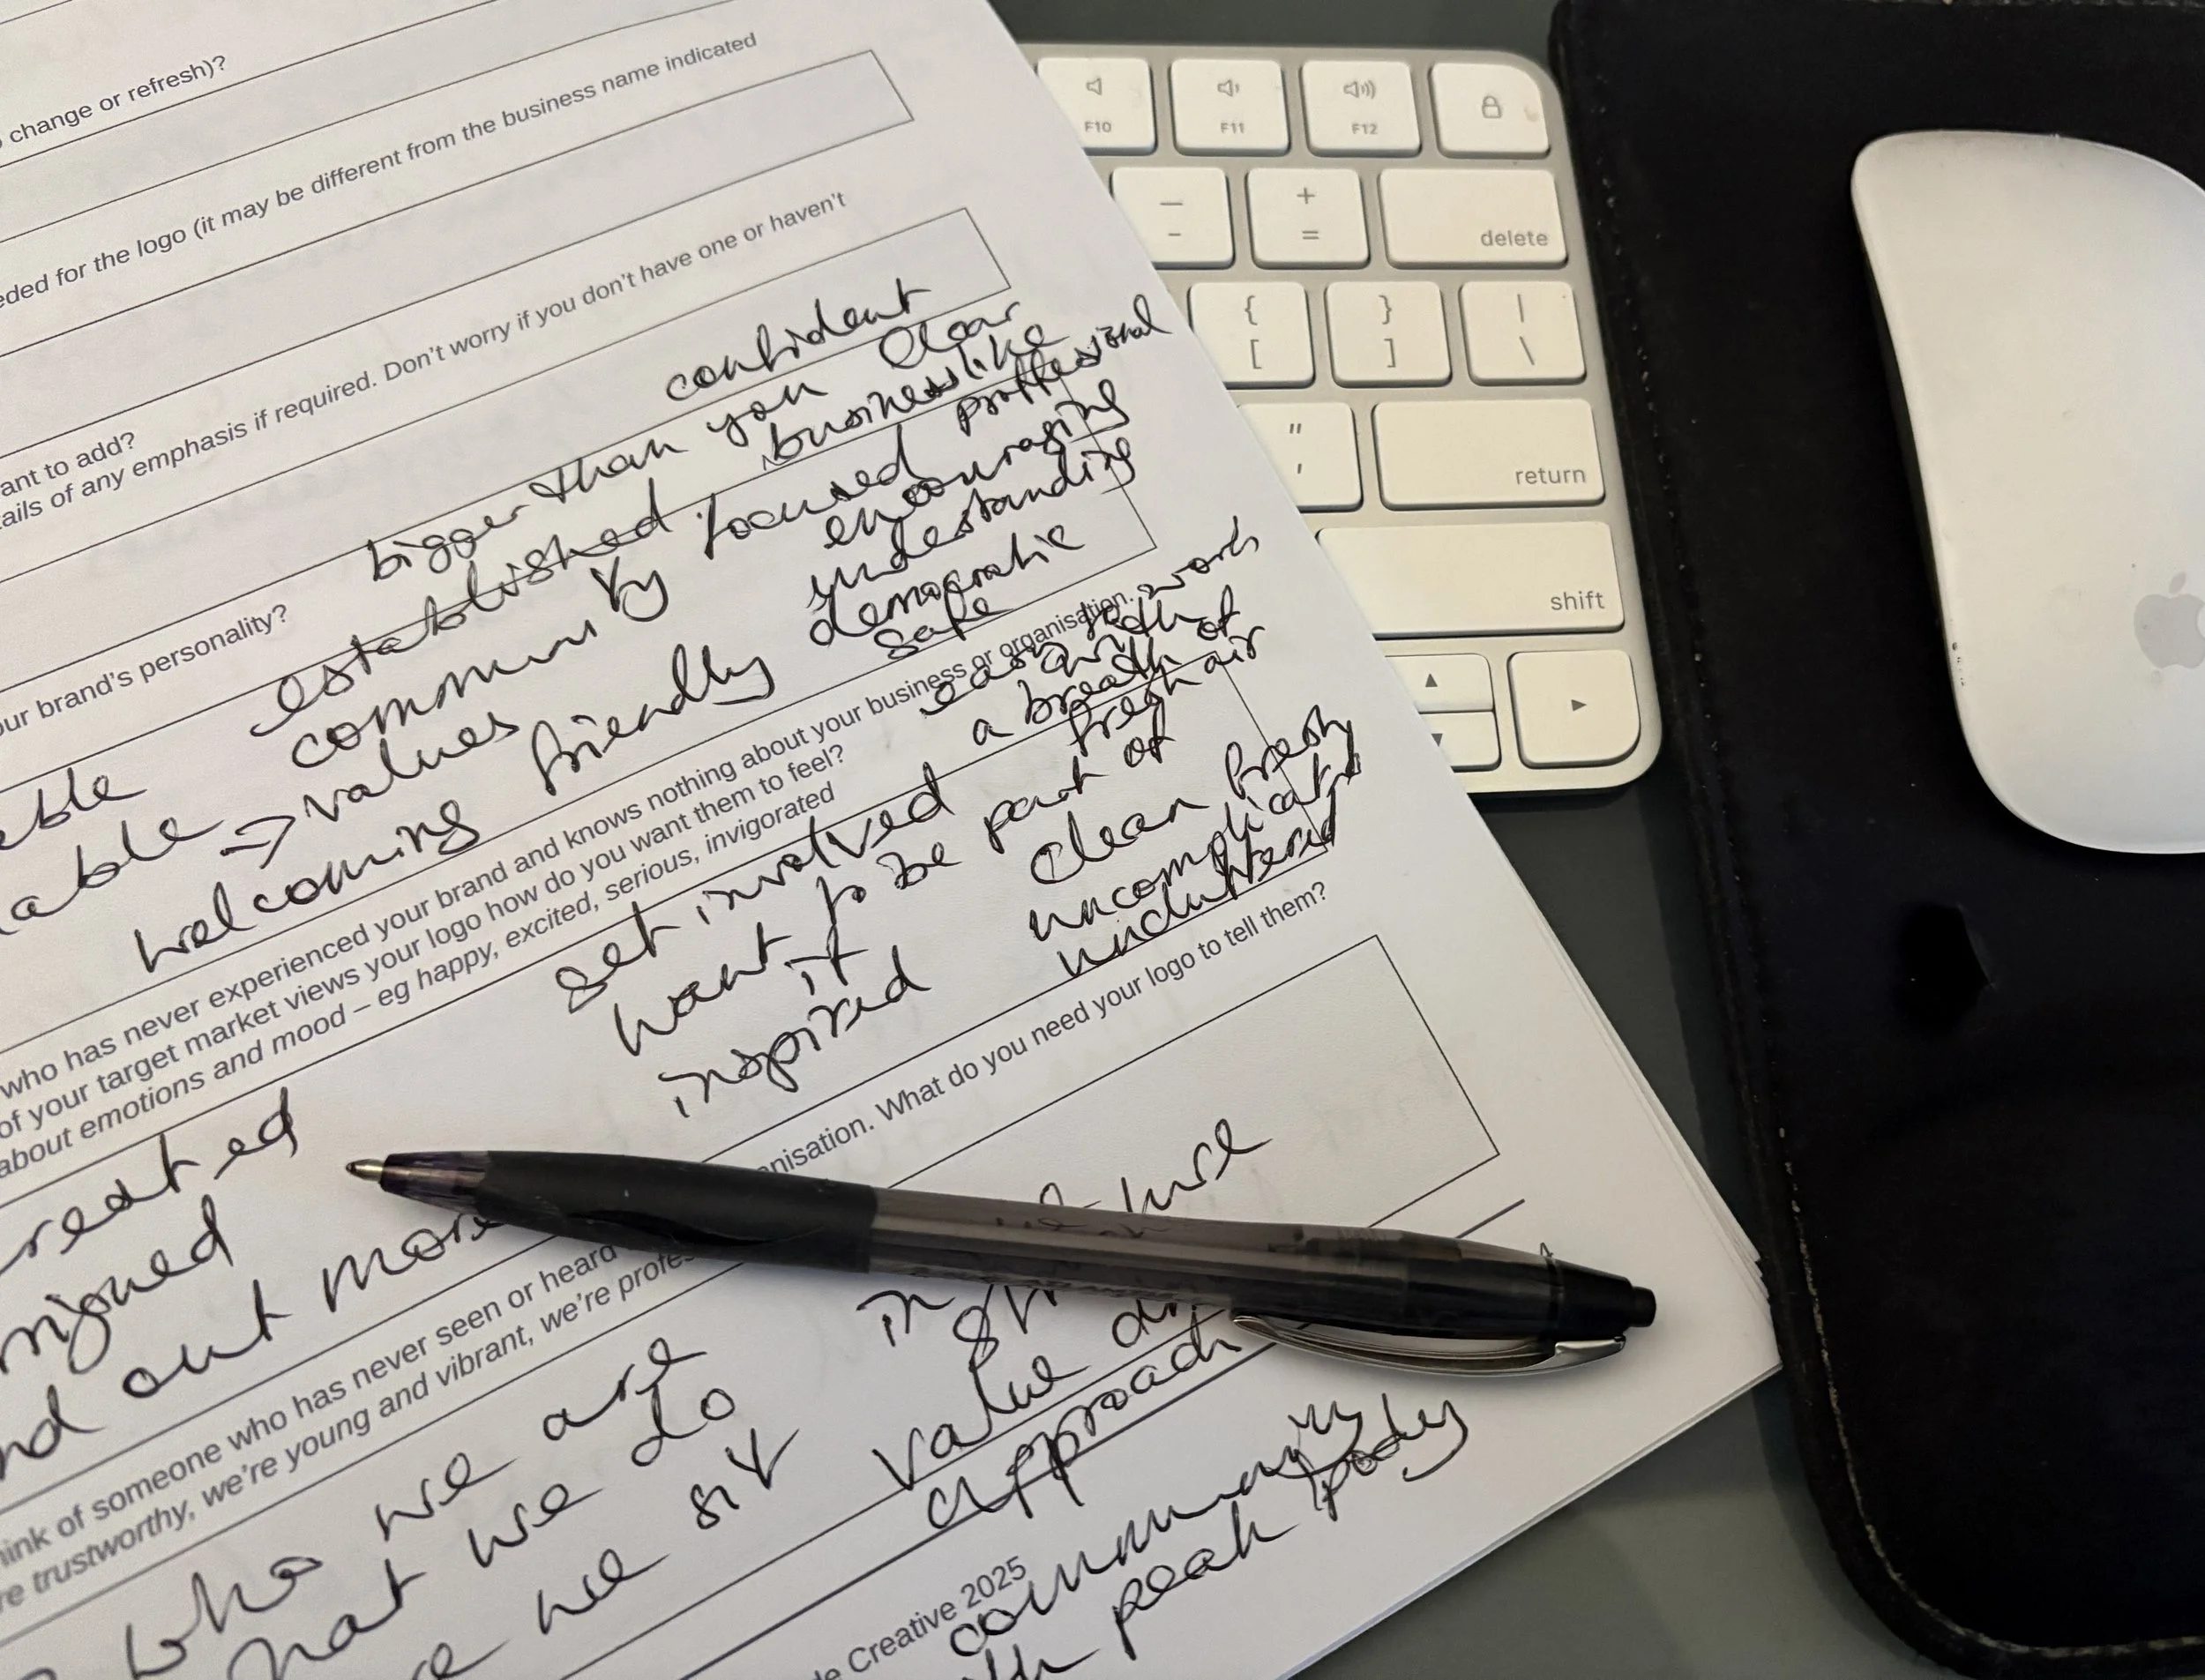 change or refresh)?
eded for the logo (it may be different from the business name indicated
ant to add?
ails of any emphasis if required. Don't worry if you don't have one or haven't
our brand's personality?
confident
bigger than you
clear
businesslike
established
focused
professional
community
encouraging
understanding
able
able => values
democratic
safe
welcoming
friendly
who has never experienced your brand and knows nothing about your business or organisation.
of your target market views your logo how do you want them to feel?
about emotions and mood – eg happy, excited, serious, invigorated
words
a breath of
fresh air
get involved
want to be part of
it
inspired
clean fresh
uncomplicated
uncluttered
reated
out more
anisation. What do you need your logo to tell them?
hink of someone who has never seen or heard
re trustworthy, we're young and vibrant, we're profes
who we are
hat we do
we sit
in
value
approach
community
peak body
de Creative 2025
F10
F11
F12
—
-
+
=
delete
{
[
}
]
|
\
"
'
return
shift